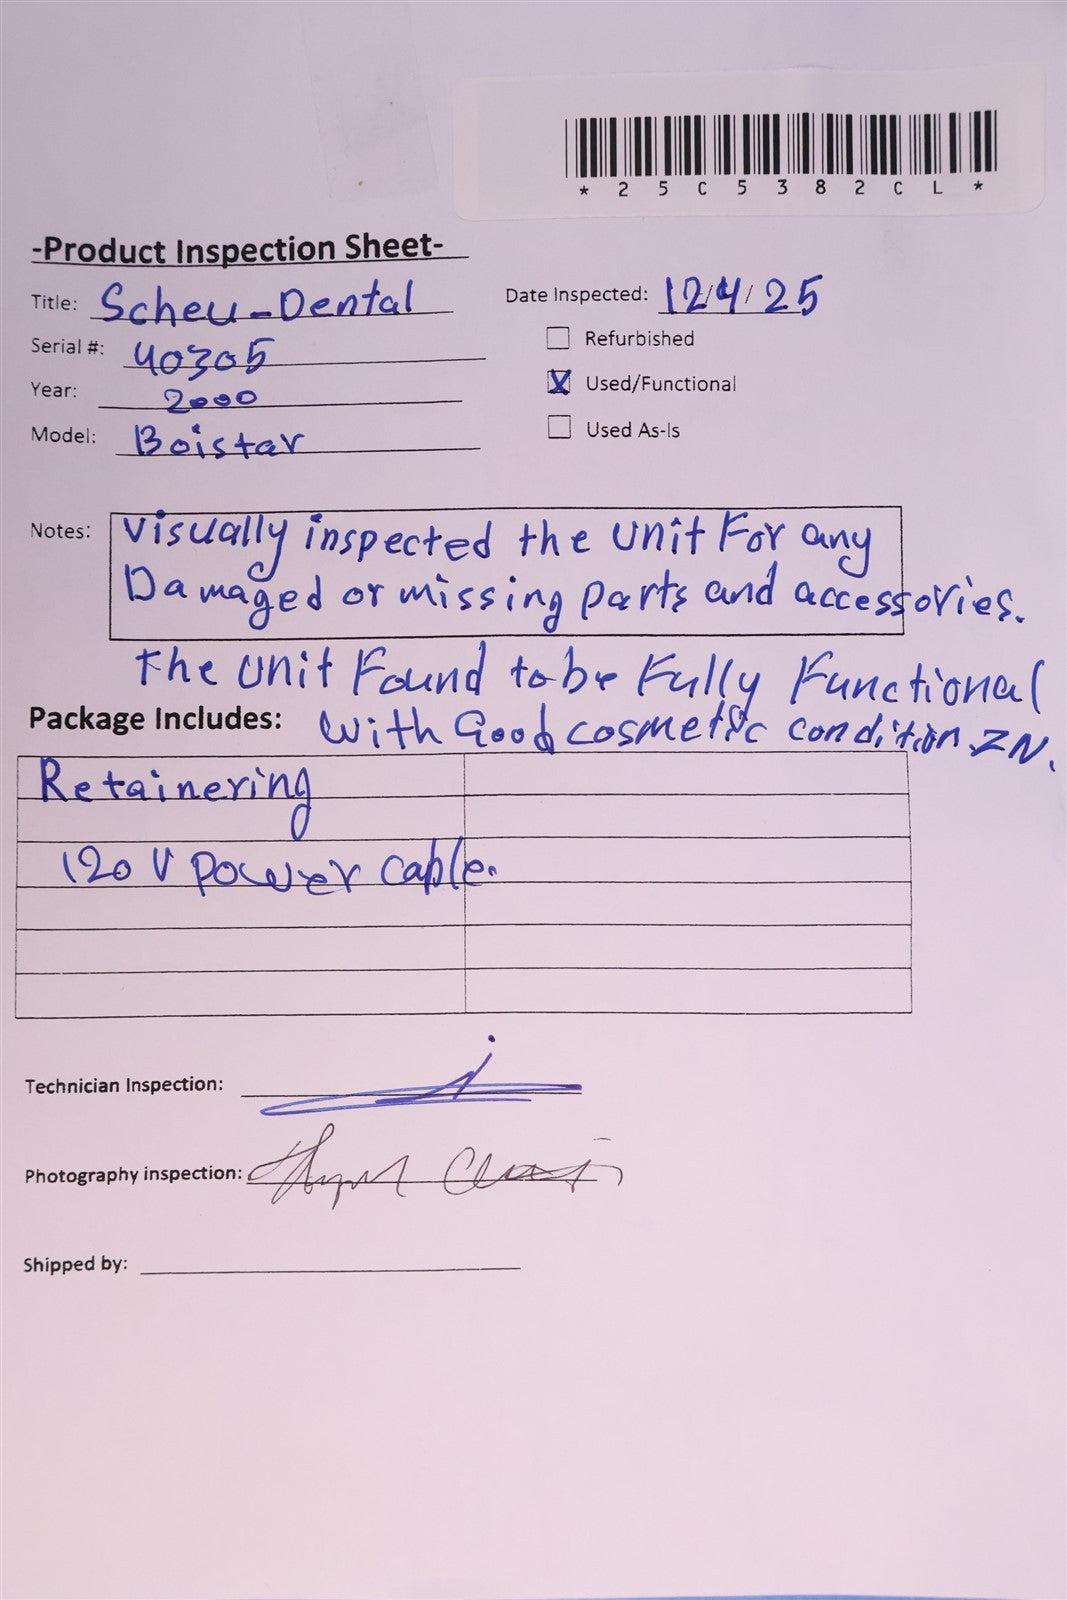 *25C5382CL*
-Product Inspection Sheet-
Title: Scheu-Dental
Date Inspected: 12/4/25
Serial #: 40305
Refurbished
Year: 2000
X Used/Functional
Model: Boistar
Used As-Is
Notes: Visually inspected the unit For any
Damaged or missing parts and accessories.
The unit Found to be Fully Functional
Package Includes: with Good cosmetic condition ZN.
Retainering
120 V power cable.
Technician Inspection:
Photography inspection:
Shipped by: